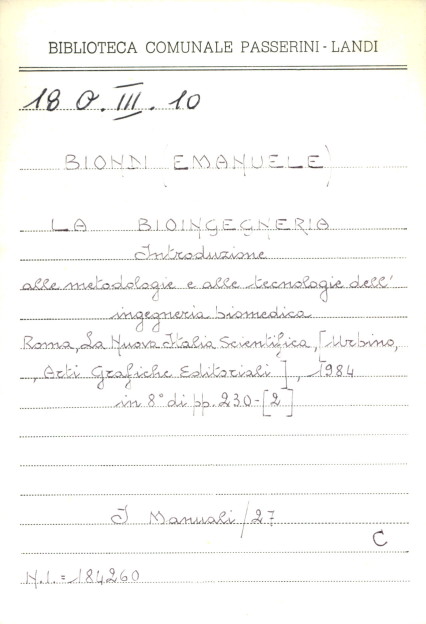 BIBLIOTECA COMUNALE PASSERINI - LANDI
18 O. III. 10
BIONDI (EMANUELE)
LA BIOINGEGNERIA
Introduzione
alle metodologie e alle tecnologie dell'
ingegneria biomedica
Roma, La Nuova Italia Scientifica, [Urbino,
, Arti Grafiche Editoriali], 1984
in 8° di pp. 230-[2]
I Manuali/27
C
N.I. = 184260